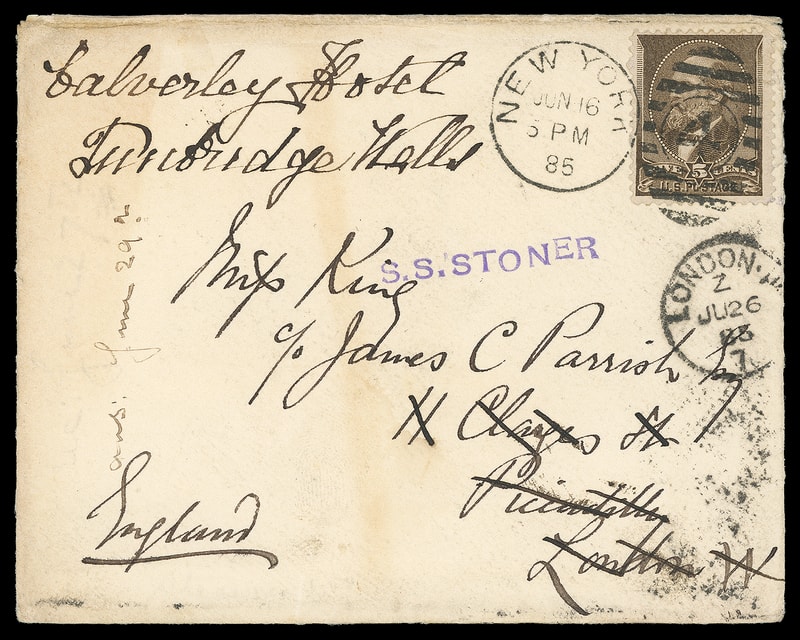 Calverley Hotel
Tunbridge Wells
NEW YORK
JUN 16
5 PM
85
5 CENTS
U.S. POSTAGE
S.S. STONER
LONDON
Z
JU 26
7
Miss King
c/o James C Parrish
Clarges St
Piccadilly
London W
England
ans. June 29